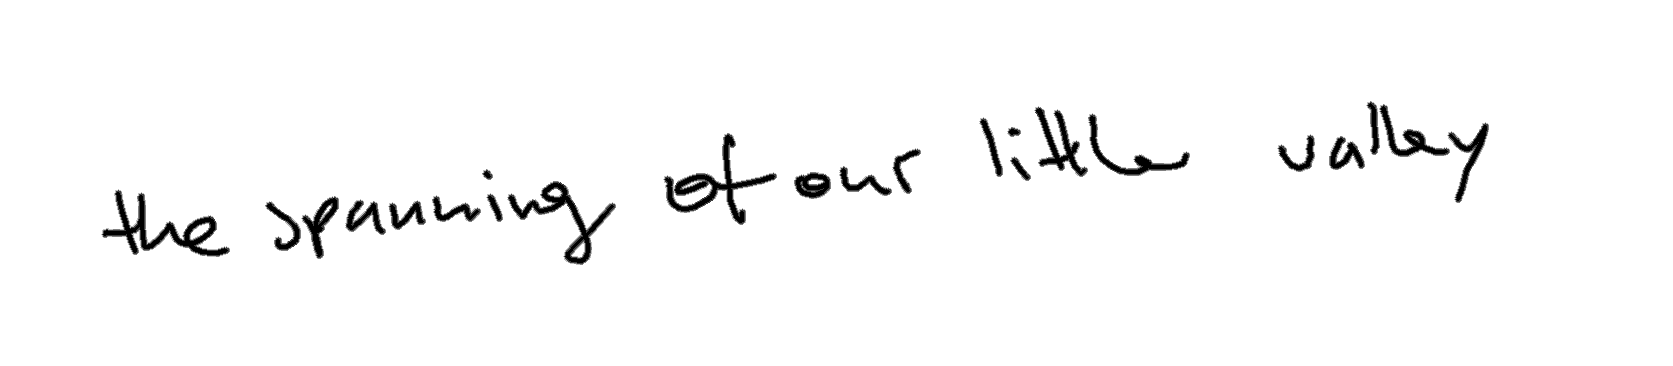 the spanning of our little valley